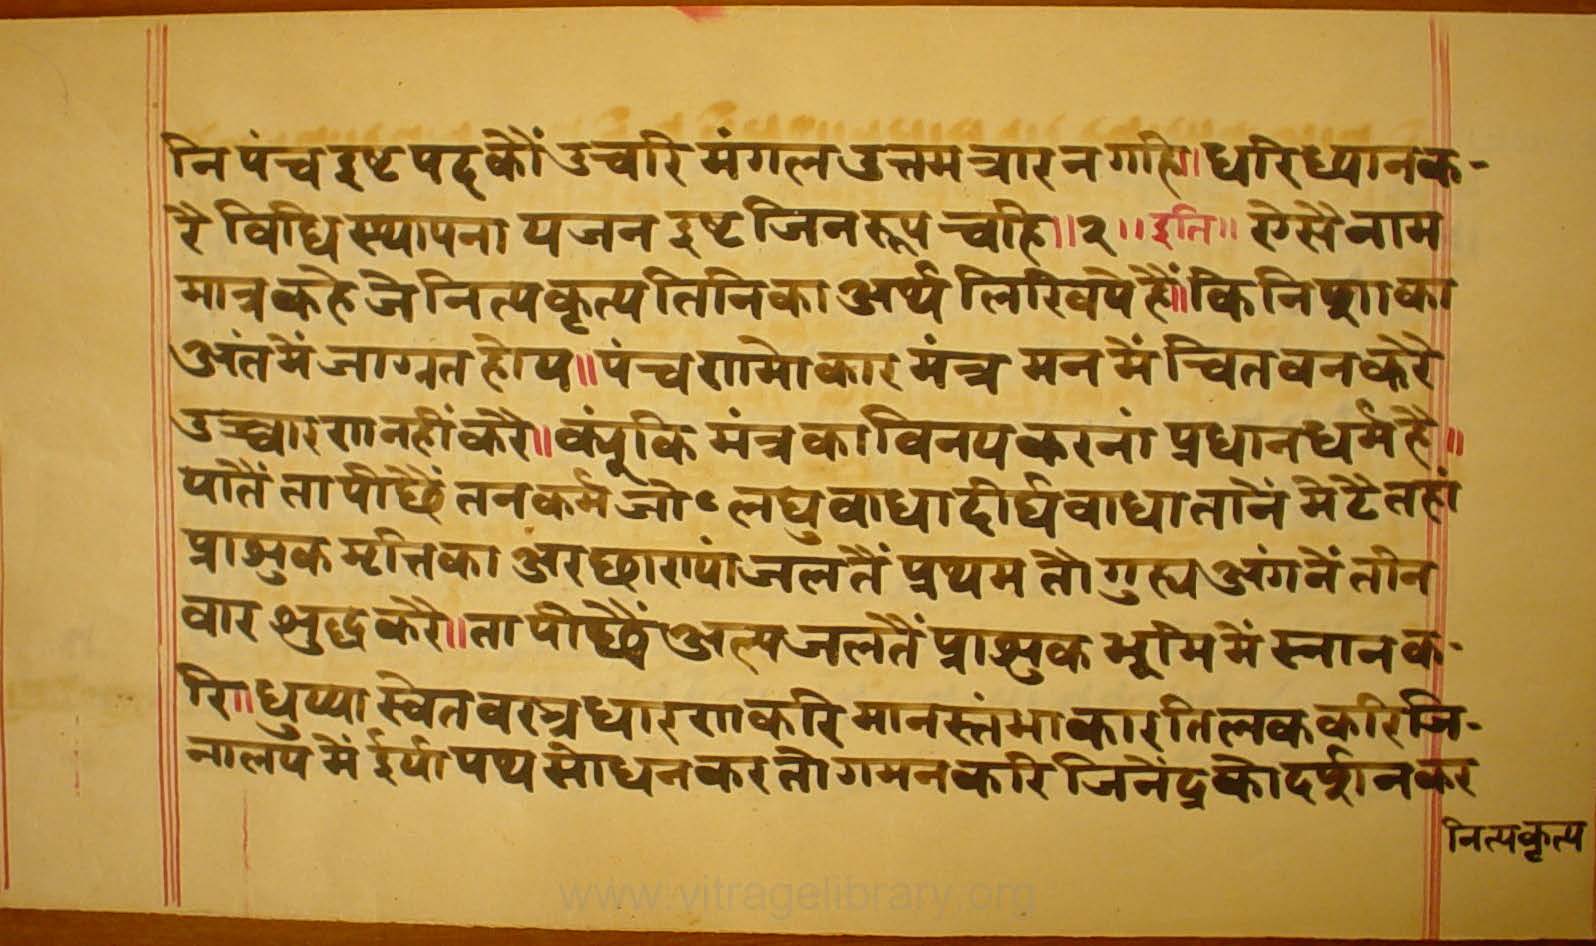 नि पंच इष्ट पद कौं उचरि मंगल उत्तम त्रारन गहि॥ धरि ध्यान क-
रै विधि स्थापना यजन इष्ट जिन रूप च्वहि॥२॥इति॥ ऐसै नाम
मात्र कहे जे नित्यकृत्य तिनिका अर्थ लिखिये हैं॥ कि निशा का
अंत मैं जाग्रत होय॥ पंच णमोकार मंत्र मन मैं चितवन करै
उच्चारण नहीं करै॥ क्यूंकि मंत्र का विनय करनां प्रधान धर्म है॥
यातैं ता पीछैं तनकर्म जो ॰ लघुवाधा दीर्घवाधा तानें मेटै तहां
प्राशुक मृत्तिका अर छाण्यां जल तैं प्रथम तौ गुह्य अंगनैं तीन
वार शुद्ध करै॥ ता पीछैं अल्प जलतैं प्राशुक भूमि मैं स्नान क-
रि॥ धुप्या स्वेत वस्त्र धारण करि मानस्तंभाकार तिलक करि जि-
नालय मैं ईर्यापथ सोधन करतो गमन करि जिनेंद्र को दर्शन कर
नित्यकृत्य
www.vitragelibrary.org